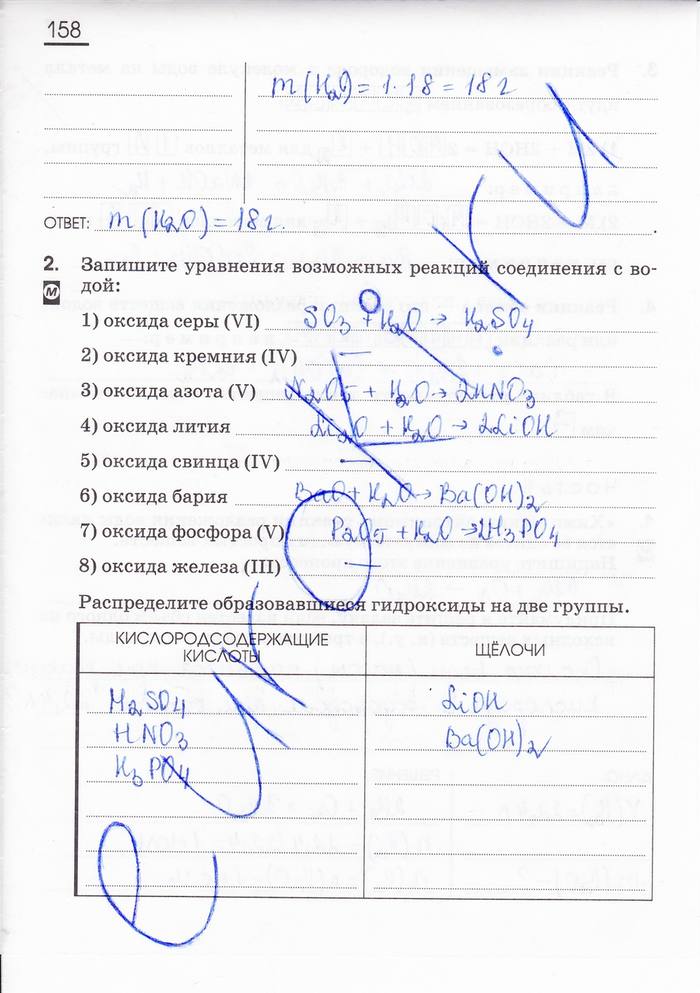 158
m(H₂O) = 1 · 18 = 18 г
ОТВЕТ: m(H₂O) = 18 г.
2. Запишите уравнения возможных реакций соединения с во-
М дой:
1) оксида серы (VI) SO₃ + H₂O → H₂SO₄
2) оксида кремния (IV) —
3) оксида азота (V) N₂O₅ + H₂O → 2HNO₃
4) оксида лития Li₂O + H₂O → 2LiOH
5) оксида свинца (IV) —
6) оксида бария BaO + H₂O → Ba(OH)₂
7) оксида фосфора (V) P₂O₅ + H₂O → 2H₃PO₄
8) оксида железа (III) —
Распределите образовавшиеся гидроксиды на две группы.
КИСЛОРОДСОДЕРЖАЩИЕ КИСЛОТЫ
ЩЁЛОЧИ
H₂SO₄ LiOH
HNO₃ Ba(OH)₂
H₃PO₄